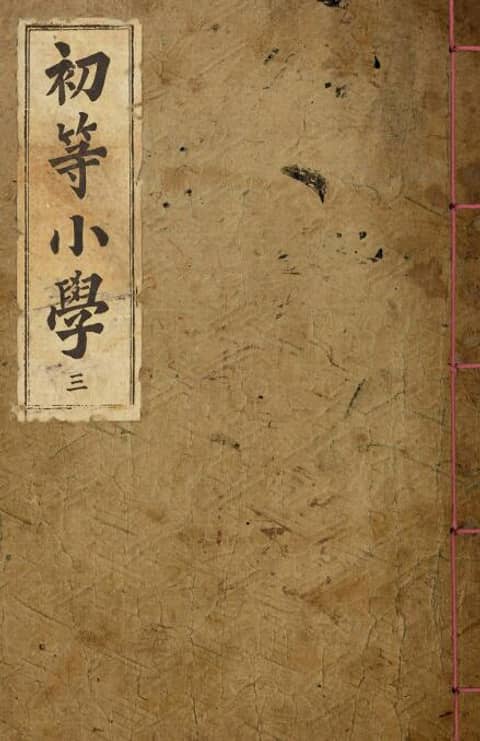 初等小學
三